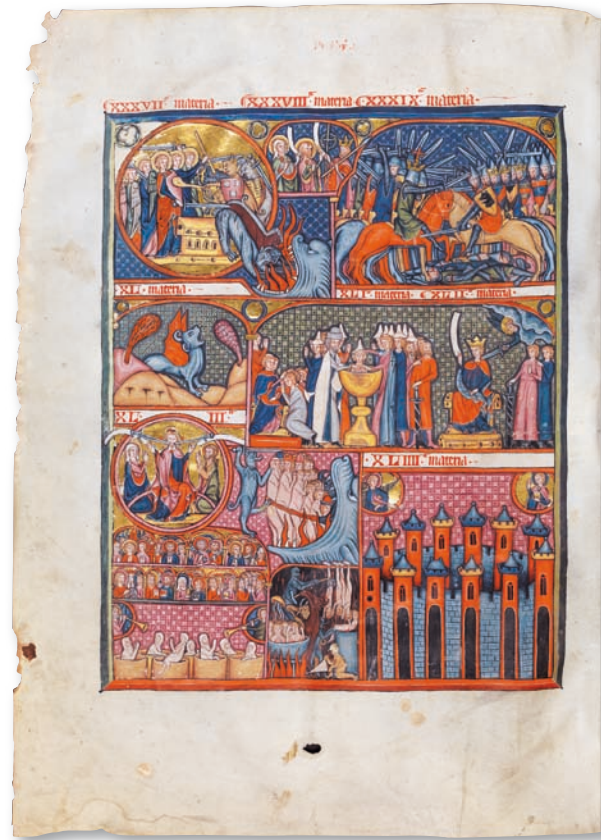 CXXXVII materia CXXXVIII materia CXXXIX materia
XL materia XLI materia CXLII materia
XL III
XLIIII materia